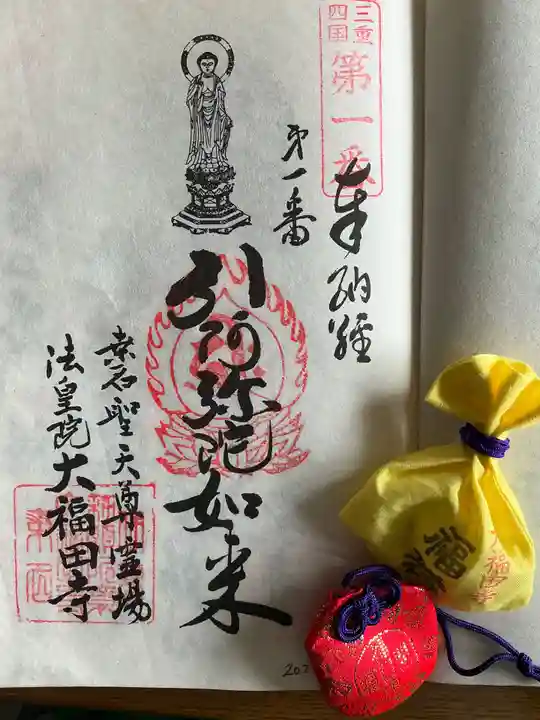 三重
四国
第一番
奉納経
第一番
引阿弥陀如来
桑名聖天尊霊場
法皇院大福田寺
福
大福田寺
202